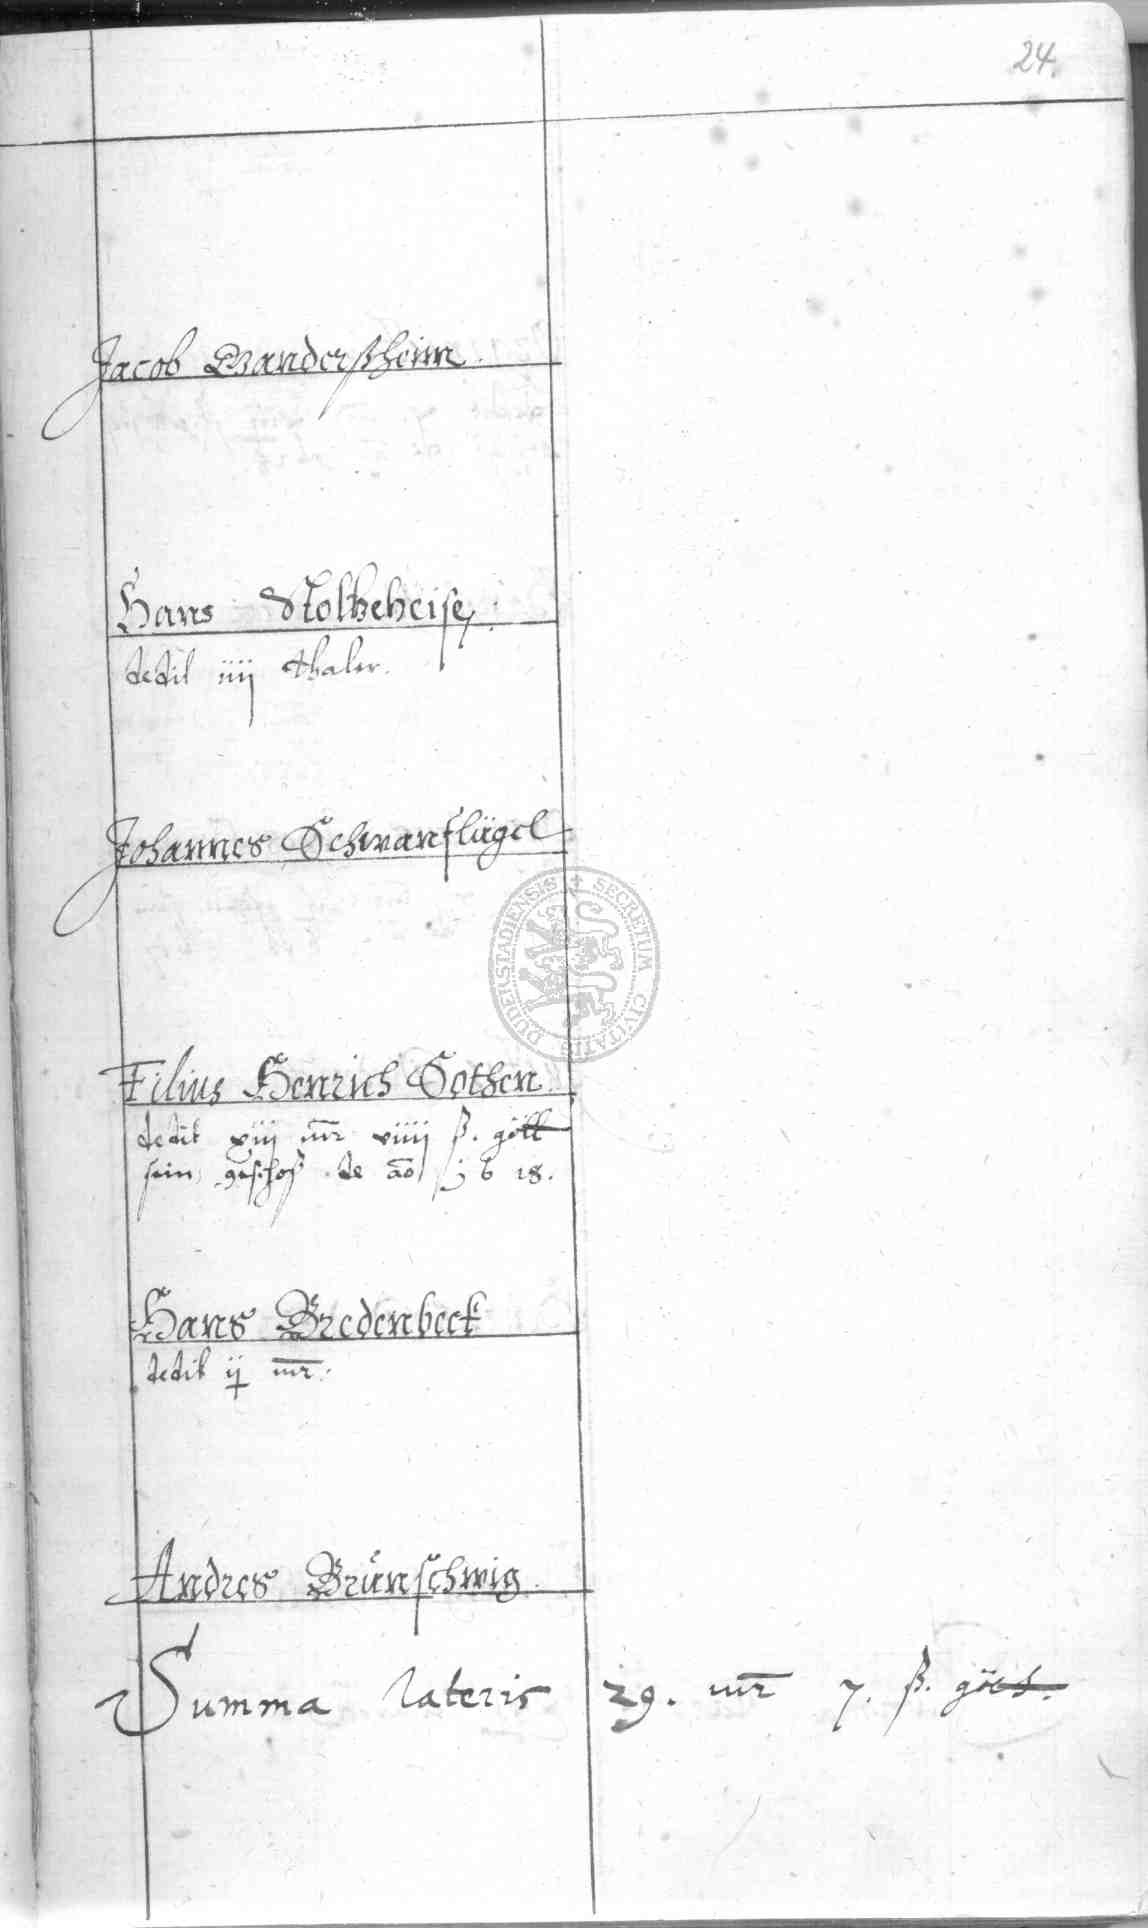 24.
Jacob Gandersheim.
Hans Noltheheise
dedit iiij thaler.
Johannes Schwanflügel
DUDERSTADIENSIS SECRETUM CIVITATIS
Filius Henrich Sothen
dedit xiij mr viiij ß. gött
sein geschoß de ao 1618.
Hans Bredenbeck
dedit ij mr.
Andres Brünschwig
Summa lateris 29. mr 7. ß. gött.